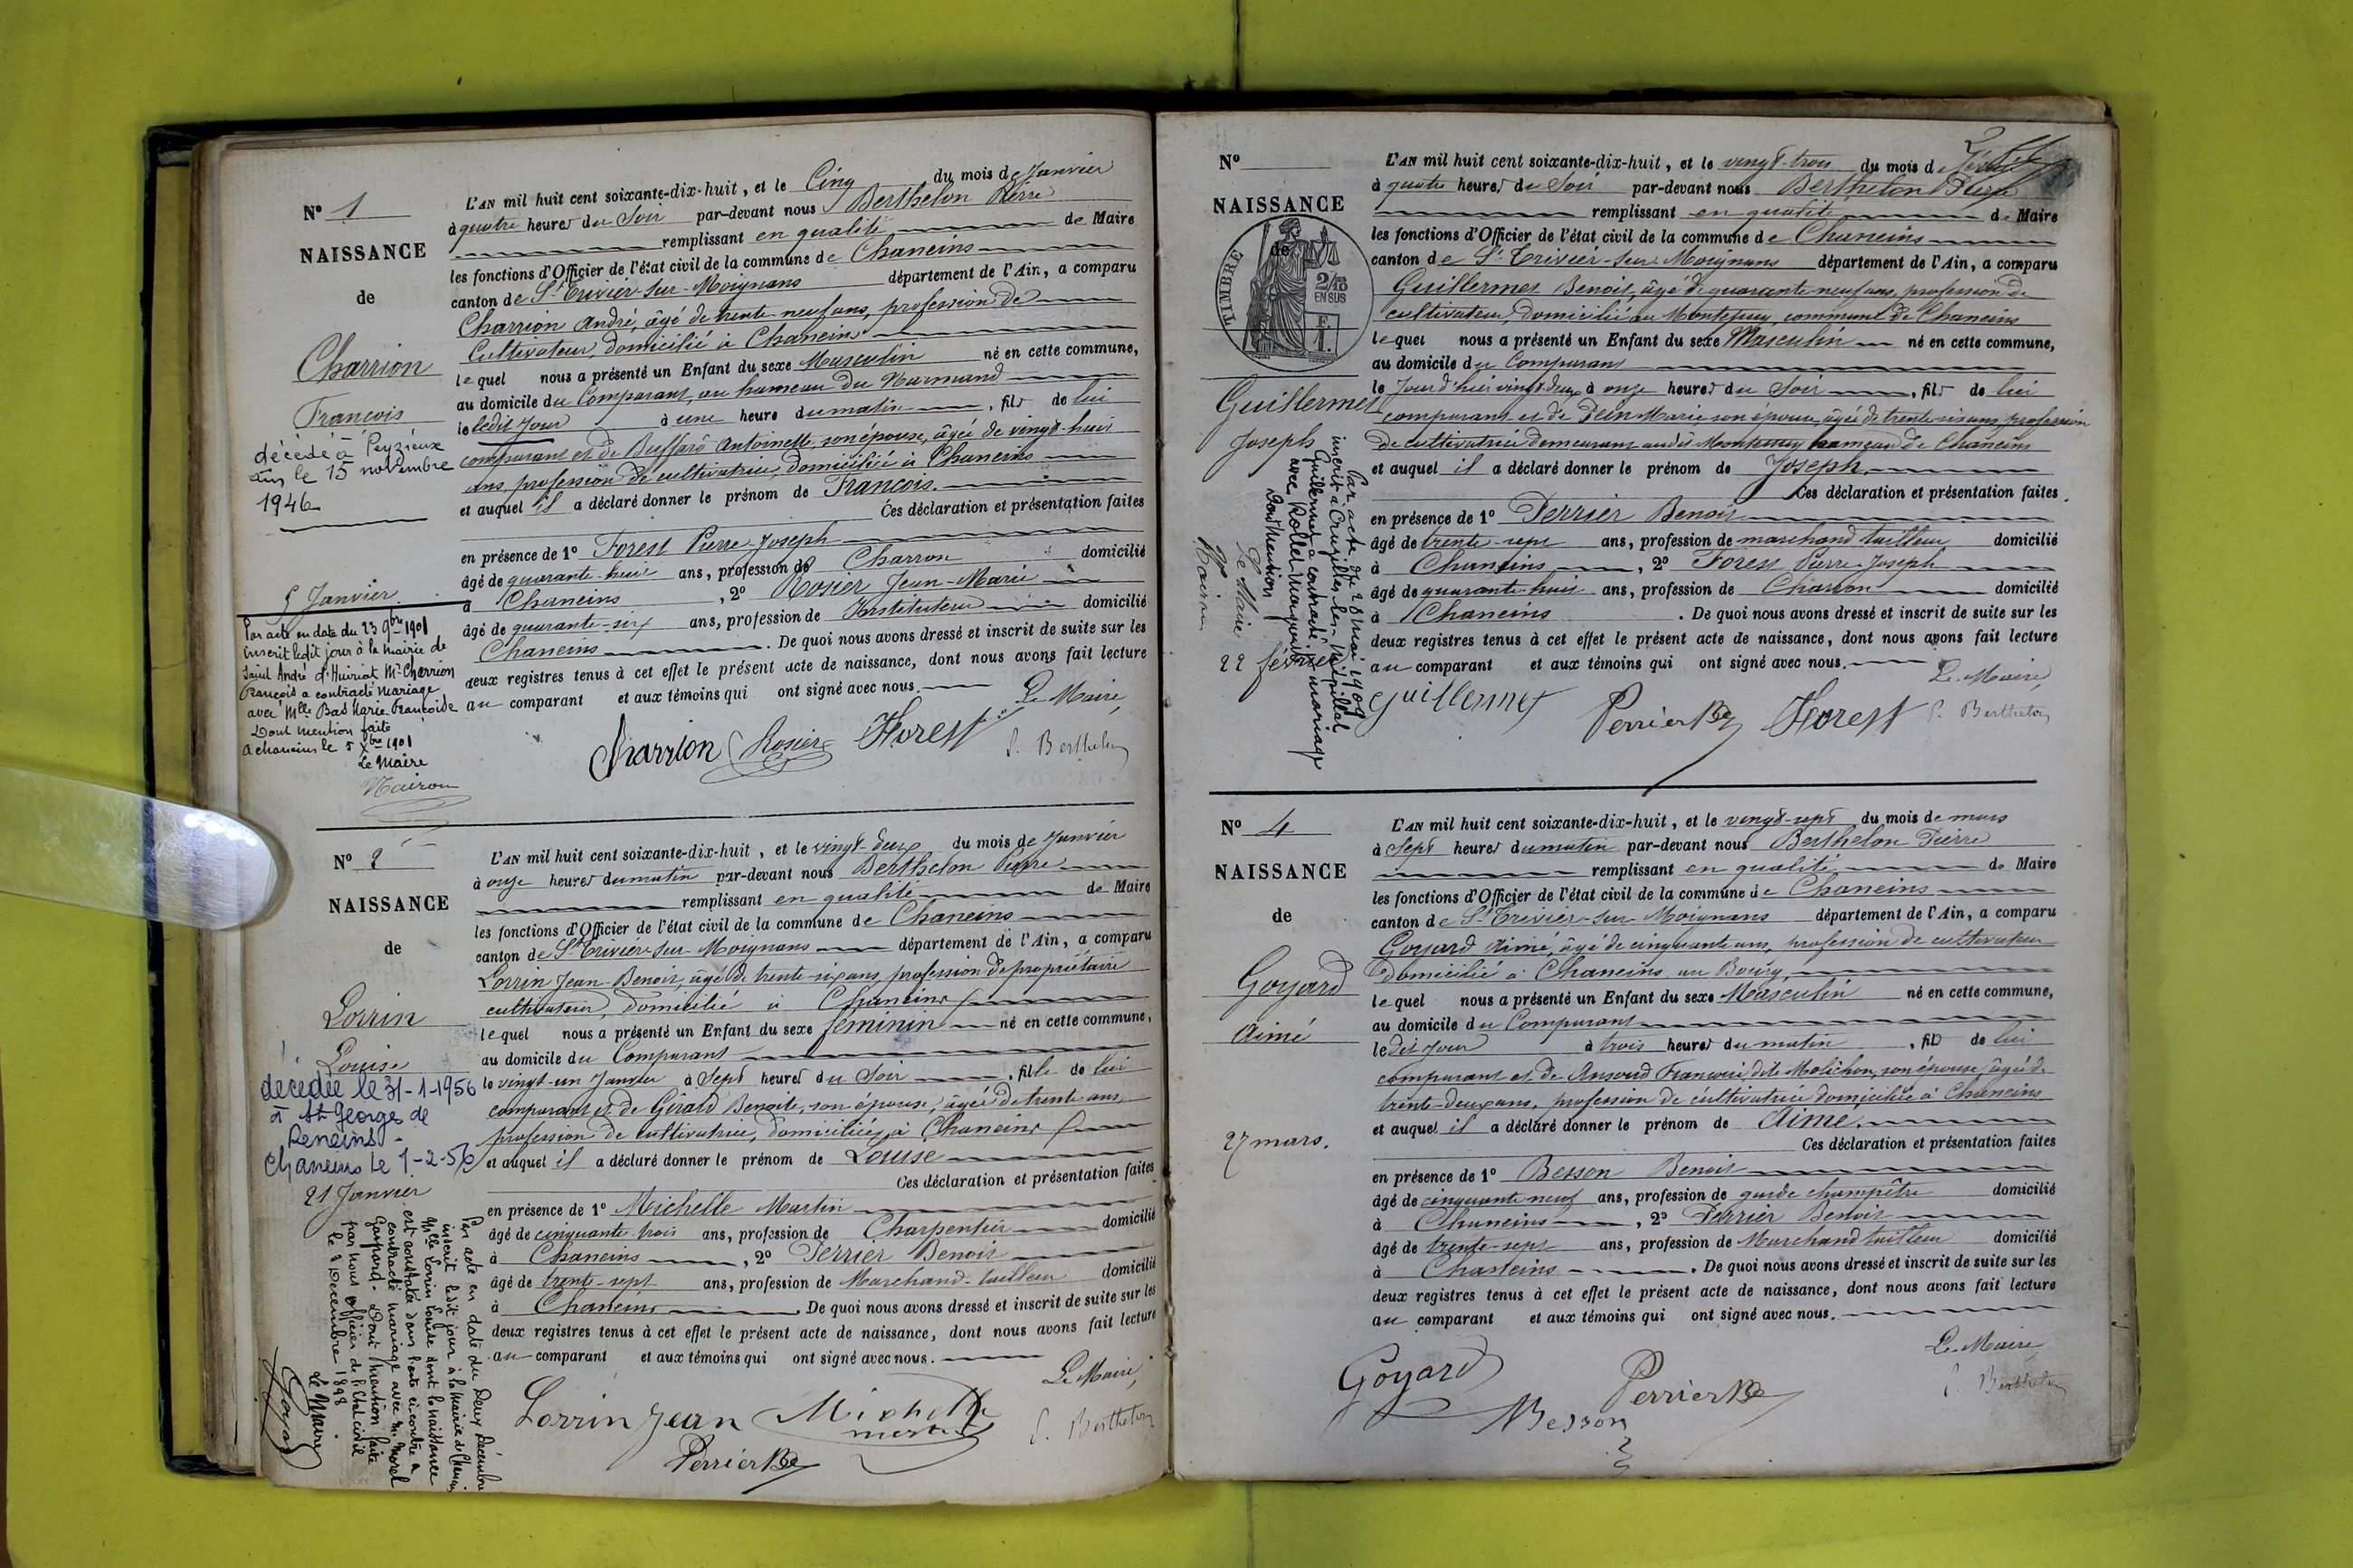 N° 1
NAISSANCE
de
Charrion
François
décédé à Peyzieux
Ain le 15 novembre
1946
5 Janvier
Par acte en date du 23 9bre 1901
inscrit ledit jour à la mairie de
Saint André d'Huiriat Mr Charrion
François a contracté mariage
avec Mlle Bas Marie Françoise
Dont mention faite
A chaneins le 5 Xbre 1901
Le Maire
L'AN mil huit cent soixante-dix-huit, et le Cinq du mois de Janvier
à quatre heures du Soir par-devant nous Berthelon Pierre
remplissant en qualité de Maire
les fonctions d'Officier de l'état civil de la commune de Chaneins
canton de St Trivier-sur-Moignans département de l'Ain, a comparu
Charrion André, âgé de trente-neuf ans, profession de
Cultivateur, domicilié à Chaneins
lequel nous a présenté un Enfant du sexe Masculin né en cette commune,
au domicile du Comparant, au hameau du
le ledit Jour à une heure du matin, fils de lui
comparant et de Buffard Antoinette, son épouse, âgée de vingt-huit
ans, profession de cultivatrice, domiciliée à Chaneins
et auquel il a déclaré donner le prénom de François.
Ces déclaration et présentation faites
en présence de 1° Forest Pierre-Joseph
âgé de quarante-huit ans, profession de Charron domicilié
à Chaneins, 2° Rosier Jean-Marie
âgé de quarante-six ans, profession de Instituteur domicilié
Chaneins. De quoi nous avons dressé et inscrit de suite sur les
deux registres tenus à cet effet le présent acte de naissance, dont nous avons fait lecture
au comparant et aux témoins qui ont signé avec nous.
Le Maire,
Charrion Rosier Forest P. Berthelon
N° 2
NAISSANCE
de
Lorrin
Louise
décédée le 31-1-1956
à St Georges de
Reneins -
Chaneins le 1-2-56
21 Janvier
Par acte en date du Deux Décembre
inscrit ledit jour à la mairie de
Mlle Lorrin Louise dont la naissance
est constatée dans l'acte ci-contre a
contracté mariage avec M. Morel
Gaspard. Dont mention faite
par nous officier de l'état civil
le 2 Décembre 1898
Le Maire
L'AN mil huit cent soixante-dix-huit, et le vingt-deux du mois de Janvier
à onze heures du matin par-devant nous Berthelon Pierre
remplissant en qualité de Maire
les fonctions d'Officier de l'état civil de la commune de Chaneins
canton de St Trivier-sur-Moignans département de l'Ain, a comparu
Lorrin Jean-Benoit, âgé de trente-six ans, profession de propriétaire
cultivateur, domicilié à Chaneins
lequel nous a présenté un Enfant du sexe féminin né en cette commune,
au domicile du Comparant
le vingt-un Janvier à Sept heures du Soir, fille de lui
comparant et de Girard Benoite, son épouse, âgée de trente ans,
profession de cultivatrice, domiciliée à Chaneins
et auquel il a déclaré donner le prénom de Louise
Ces déclaration et présentation faites
en présence de 1° Michelle Martin
âgé de cinquante-trois ans, profession de Charpentier domicilié
à Chaneins, 2° Perrier Benoit
âgé de trente-sept ans, profession de Marchand-tailleur domicilié
à Chaneins. De quoi nous avons dressé et inscrit de suite sur les
deux registres tenus à cet effet le présent acte de naissance, dont nous avons fait lecture
au comparant et aux témoins qui ont signé avec nous.
Le Maire,
Lorrin Jean Michelle
P. Berthelon
Perrier
N°
NAISSANCE
de
TIMBRE
2/10
EN SUS
Guillermet
Joseph
Par acte du 28 mai 1904
inscrit à Cruzilles-les-Mépillat
Guillermet a contracté mariage
avec Rollet Marguerite
Dont Mention
Le Maire
22 février
L'AN mil huit cent soixante-dix-huit, et le vingt-trois du mois de
à quatre heures du Soir par-devant nous Berthelon Pierre
remplissant en qualité de Maire
les fonctions d'Officier de l'état civil de la commune de Chaneins
canton de St Trivier-sur-Moignans département de l'Ain, a comparu
Guillermet Benoit, âgé de quarante-neuf ans, profession de
cultivateur, domicilié au commune de Chaneins
lequel nous a présenté un Enfant du sexe Masculin né en cette commune,
au domicile du Comparant
le Jourd'hui vingt-deux à onze heures du Soir, fils de lui
comparant et de Marie son épouse, âgée de trente-six ans, profession
de cultivatrice demeurant audit hameau de Chaneins
et auquel il a déclaré donner le prénom de Joseph
Ces déclaration et présentation faites
en présence de 1° Perrier Benoit
âgé de trente-sept ans, profession de marchand tailleur domicilié
à Chaneins, 2° Forest Pierre-Joseph
âgé de quarante-huit ans, profession de Charron domicilié
à Chaneins. De quoi nous avons dressé et inscrit de suite sur les
deux registres tenus à cet effet le présent acte de naissance, dont nous avons fait lecture
au comparant et aux témoins qui ont signé avec nous.
Le Maire,
Guillermet Perrier Forest P. Berthelon
N° 4
NAISSANCE
de
Goyard
Aimé
27 mars.
L'AN mil huit cent soixante-dix-huit, et le vingt-sept du mois de mars
à Sept heures du matin par-devant nous Berthelon Pierre
remplissant en qualité de Maire
les fonctions d'Officier de l'état civil de la commune de Chaneins
canton de St Trivier-sur-Moignans département de l'Ain, a comparu
Goyard Aimé, âgé de cinquante ans, profession de cultivateur
domicilié à Chaneins, au Bourg,
lequel nous a présenté un Enfant du sexe Masculin né en cette commune,
au domicile du Comparant
ledit Jour à trois heures du matin, fils de lui
comparant et de Françoise, dite Molichon, son épouse, âgée de
trente-deux ans, profession de cultivatrice domiciliée à Chaneins
et auquel il a déclaré donner le prénom de Aimé.
Ces déclaration et présentation faites
en présence de 1° Besson Benoit
âgé de cinquante-neuf ans, profession de garde champêtre domicilié
à Chaneins, 2° Perrier Benoit
âgé de trente-sept ans, profession de Marchand tailleur domicilié
à Chaneins. De quoi nous avons dressé et inscrit de suite sur les
deux registres tenus à cet effet le présent acte de naissance, dont nous avons fait lecture
au comparant et aux témoins qui ont signé avec nous.
Le Maire,
Goyard Perrier P. Berthelon
Besson